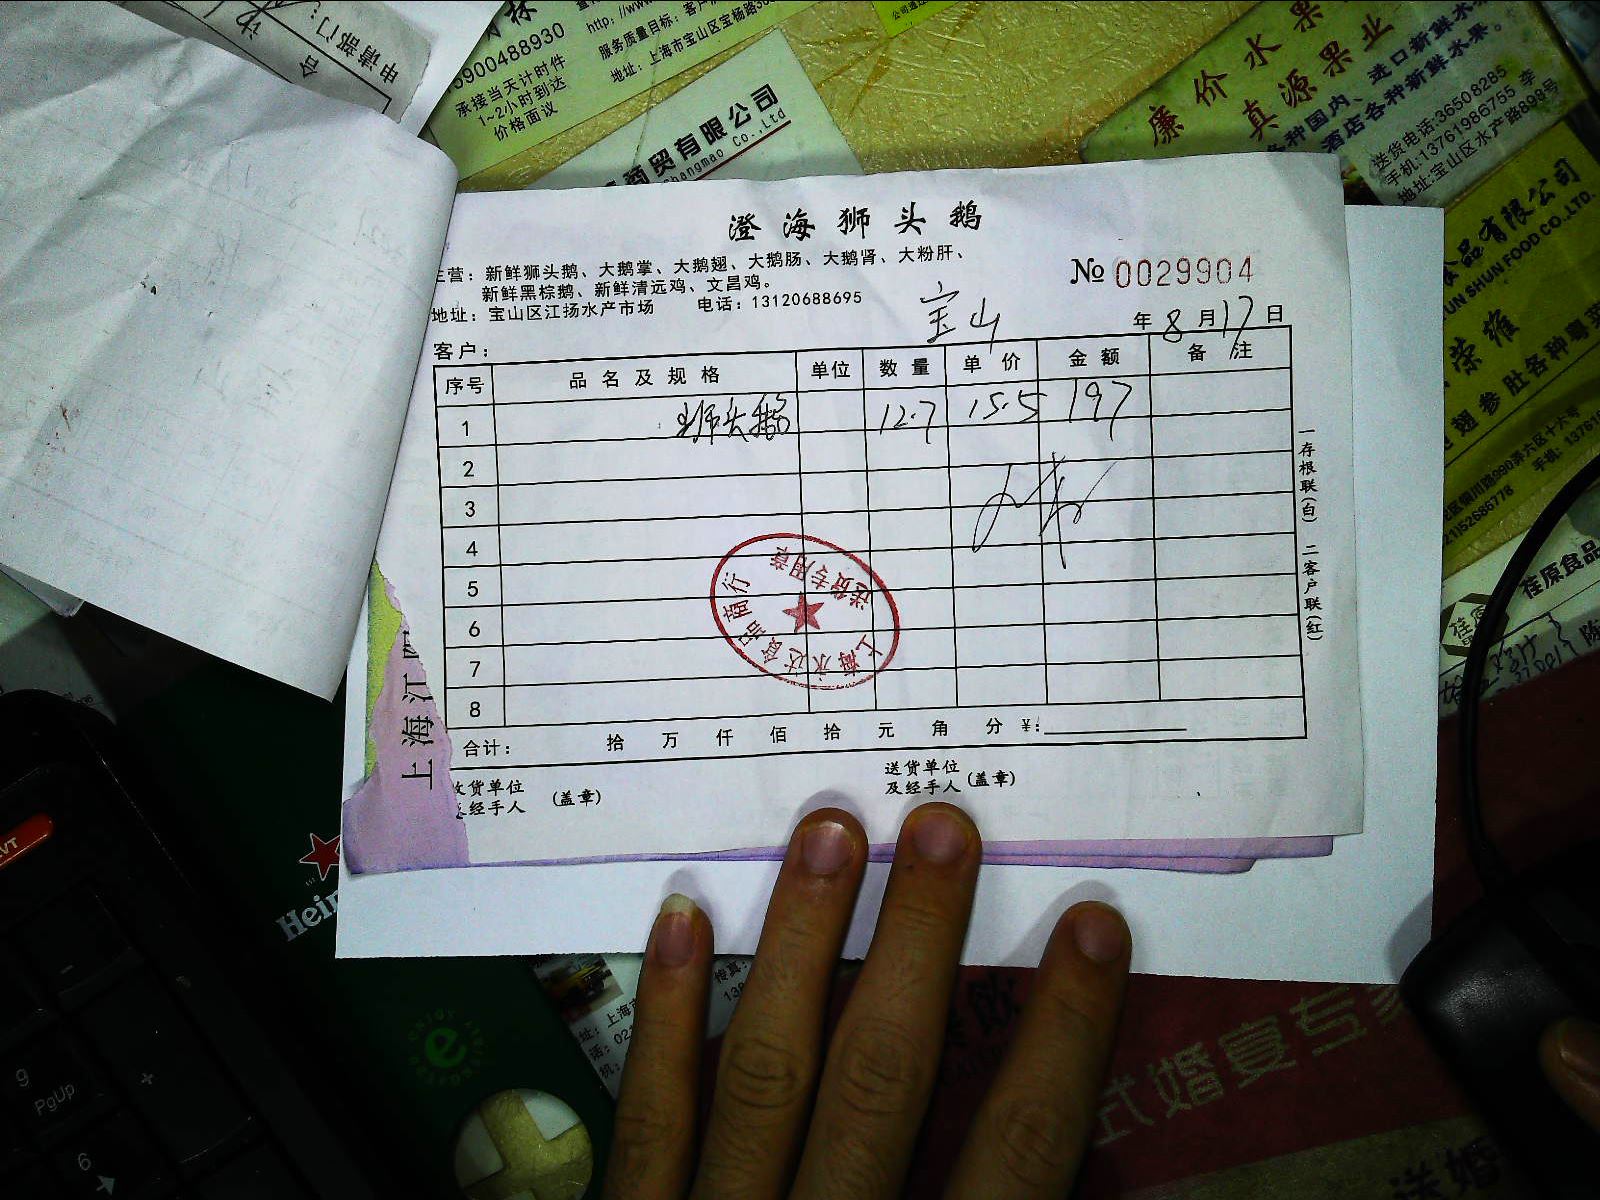 申请部门：
合
15900488930
承接当天计时件
1~2小时到达
价格面议
http://www
服务质量目标：客户
地址：上海市宝山区宝杨路
商贸有限公司
Shangmao Co.,Ltd
廉价水果
真源果业
各种国内、进口新鲜水果
酒店各种新鲜水果。
送货电话:36508285
手机:13761986755 李
地址:宝山区水产路898号
食品有限公司
UN SHUN FOOD CO.,LTD.
荣维
翅参肚各种粤菜
区铜川路990弄六区十六号
21)52686778
手机: 13761
荏原食品
澄海狮头鹅
主营：新鲜狮头鹅、大鹅掌、大鹅翅、大鹅肠、大鹅肾、大粉肝、
新鲜黑棕鹅、新鲜清远鸡、文昌鸡。
地址：宝山区江扬水产市场 电话：13120688695
№ 0029904
宝山
年 8 月 17 日
客户：
序号 品名及规格 单位 数量 单价 金额 备注
1 狮头鹅 12.7 15.5 197
2
3
4
5
6
7
8
合计： 拾 万 仟 佰 拾 元 角 分 ¥:
收货单位
及经手人 (盖章)
送货单位
及经手人 (盖章)
一存根联(白) 二客户联(红)
上海永达食品商行
送货专用章
上海江
Hein
enjoy
9
PgUp
6
+
传真:
式婚宴专家
送婚